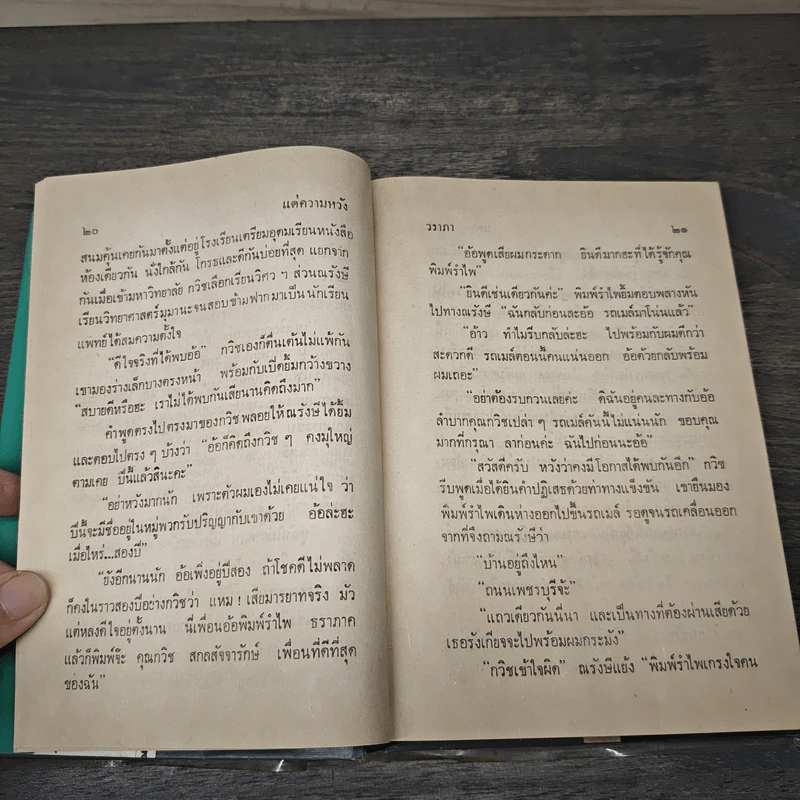 ๒๐
แต่ความหวัง
สนมคุ้นเคยกันมาตั้งแต่อยู่โรงเรียนเตรียมอุดมเรียนหนังสือ
ห้องเดียวกัน นั่งใกล้กัน โกรธและดีกันบ่อยที่สุด แยกจาก
กันเมื่อเข้ามหาวิทยาลัย กวิชเลือกเรียนวิศว ฯ ส่วนณรังษี
เรียนวิทยาศาสตร์มุมานะจนสอบข้ามฟากมาเป็นนักเรียน
แพทย์ได้สมความตั้งใจ
“ดีใจจริงที่ได้พบอ้อ” กวิชเองก็ตื่นเต้นไม่แพ้กัน
เขามองร่างเล็กบางตรงหน้า พร้อมกับเปิดยิ้มกว้างขวาง
“สบายดีหรือฮะ เราไม่ได้พบกันเสียนานคิดถึงมาก”
คำพูดตรงไปตรงมาของกวิชพลอยให้ณรังษีได้ยิ้ม
และตอบไปตรง ๆ บ้างว่า “อ้อก็คิดถึงกวิช ๆ คงมุใหญ่
ตามเคย ปีนี้แล้วสินะคะ”
“อย่าหวังมากนัก เพราะตัวผมเองไม่เคยแน่ใจ ว่า
ปีนี้จะมีชื่ออยู่ในหมู่พวกรับปริญญากับเขาด้วย อ้อล่ะฮะ
เมื่อไหร่...สองปี”
“ยังอีกนานนัก อ้อเพิ่งอยู่ปีสอง ถ้าโชคดีไม่พลาด
ก็คงในราวสองปีอย่างกวิชว่า แหม ! เสียมารยาทจริง มัว
แต่หลงดีใจอยู่ตั้งนาน นี่เพื่อนอ้อพิมพ์รำไพ ธราภาค
แล้วก็พิมพ์จ๊ะ คุณกวิช สกลสัจจารักษ์ เพื่อนที่ดีที่สุด
ของฉัน”
วราภา
๒๑
“อ้อพูดเสียผมกระดาก ยินดีมากฮะที่ได้รู้จักคุณ
พิมพ์รำไพ”
“ยินดีเช่นเดียวกันค่ะ” พิมพ์รำไพยิ้มตอบพลางหัน
ไปทางณรังษี “ฉันกลับก่อนละอ้อ รถเมล์มาโน่นแล้ว”
“อ้าว ทำไมรีบกลับล่ะฮะ ไปพร้อมกับผมดีกว่า
สะดวกดี รถเมล์ตอนนี้คนแน่นออก อ้อด้วยกลับพร้อม
ผมเถอะ”
“อย่าต้องรบกวนเลยค่ะ ดิฉันอยู่คนละทางกับอ้อ
ลำบากคุณกวิชเปล่า ๆ รถเมล์คันนี้ไม่แน่นนัก ขอบคุณ
มากที่กรุณา ลาก่อนค่ะ ฉันไปก่อนนะอ้อ”
“สวัสดีครับ หวังว่าคงมีโอกาสได้พบกันอีก” กวิช
รีบพูดเมื่อได้ยินคำปฏิเสธด้วยท่าทางแข็งขัน เขายืนมอง
พิมพ์รำไพเดินห่างออกไปขึ้นรถเมล์ รอดูจนรถเคลื่อนออก
จากที่จึงถามณรังษีว่า
“บ้านอยู่ถึงไหน”
“ถนนเพชรบุรีจ้ะ”
“แถวเดียวกันนี่นา และเป็นทางที่ต้องผ่านเสียด้วย
เธอรังเกียจจะไปพร้อมผมกระมัง”
“กวิชเข้าใจผิด” ณรังษีแย้ง “พิมพ์รำไพเกรงใจคน